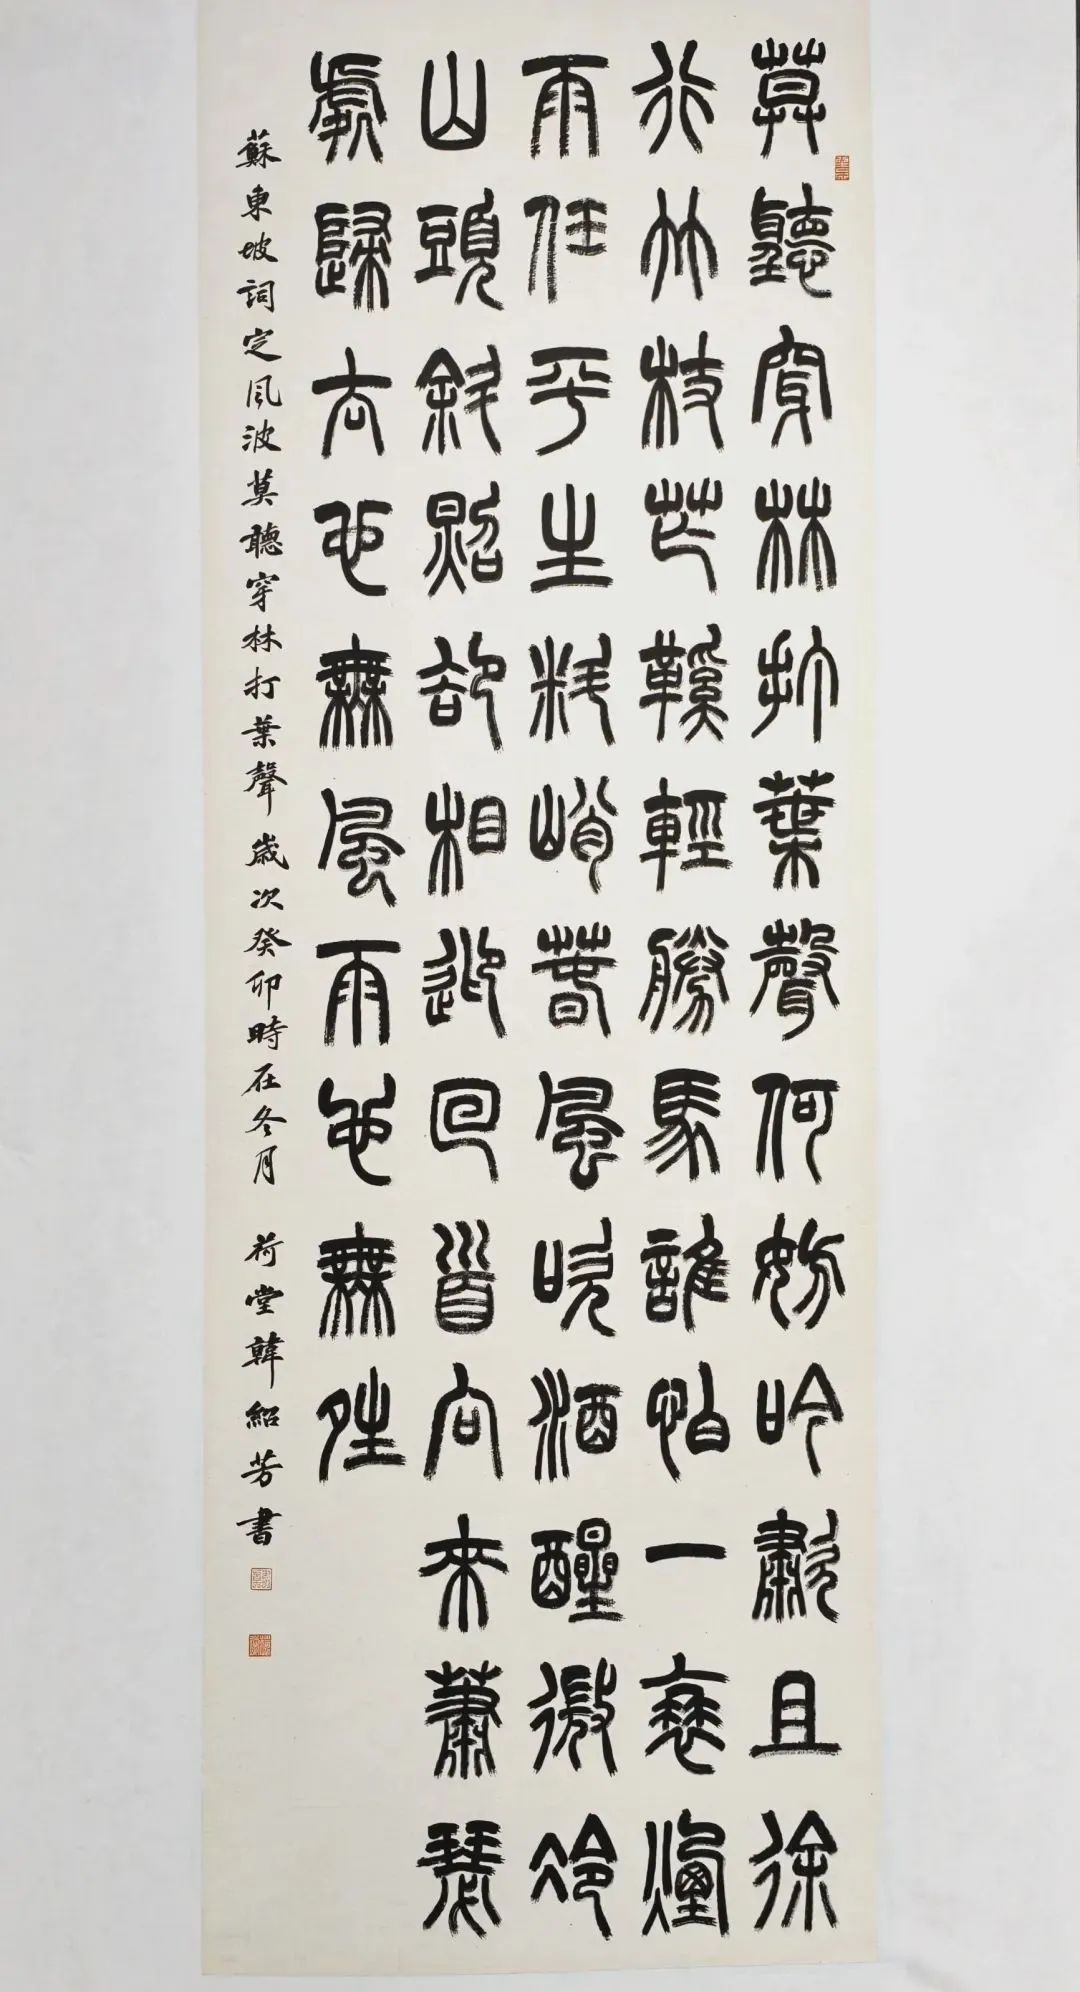 莫聽穿林打葉聲何妨吟歗且徐
行竹杖芒鞵輕勝馬誰怕一蓑煙
雨任平生料峭春風吹酒醒微冷
山頭斜照卻相迎回首向來蕭瑟
處歸去也無風雨也無晴
蘇東坡詞定風波莫聽穿林打葉聲歲次癸卯時在冬月 荷堂韓紹芳書